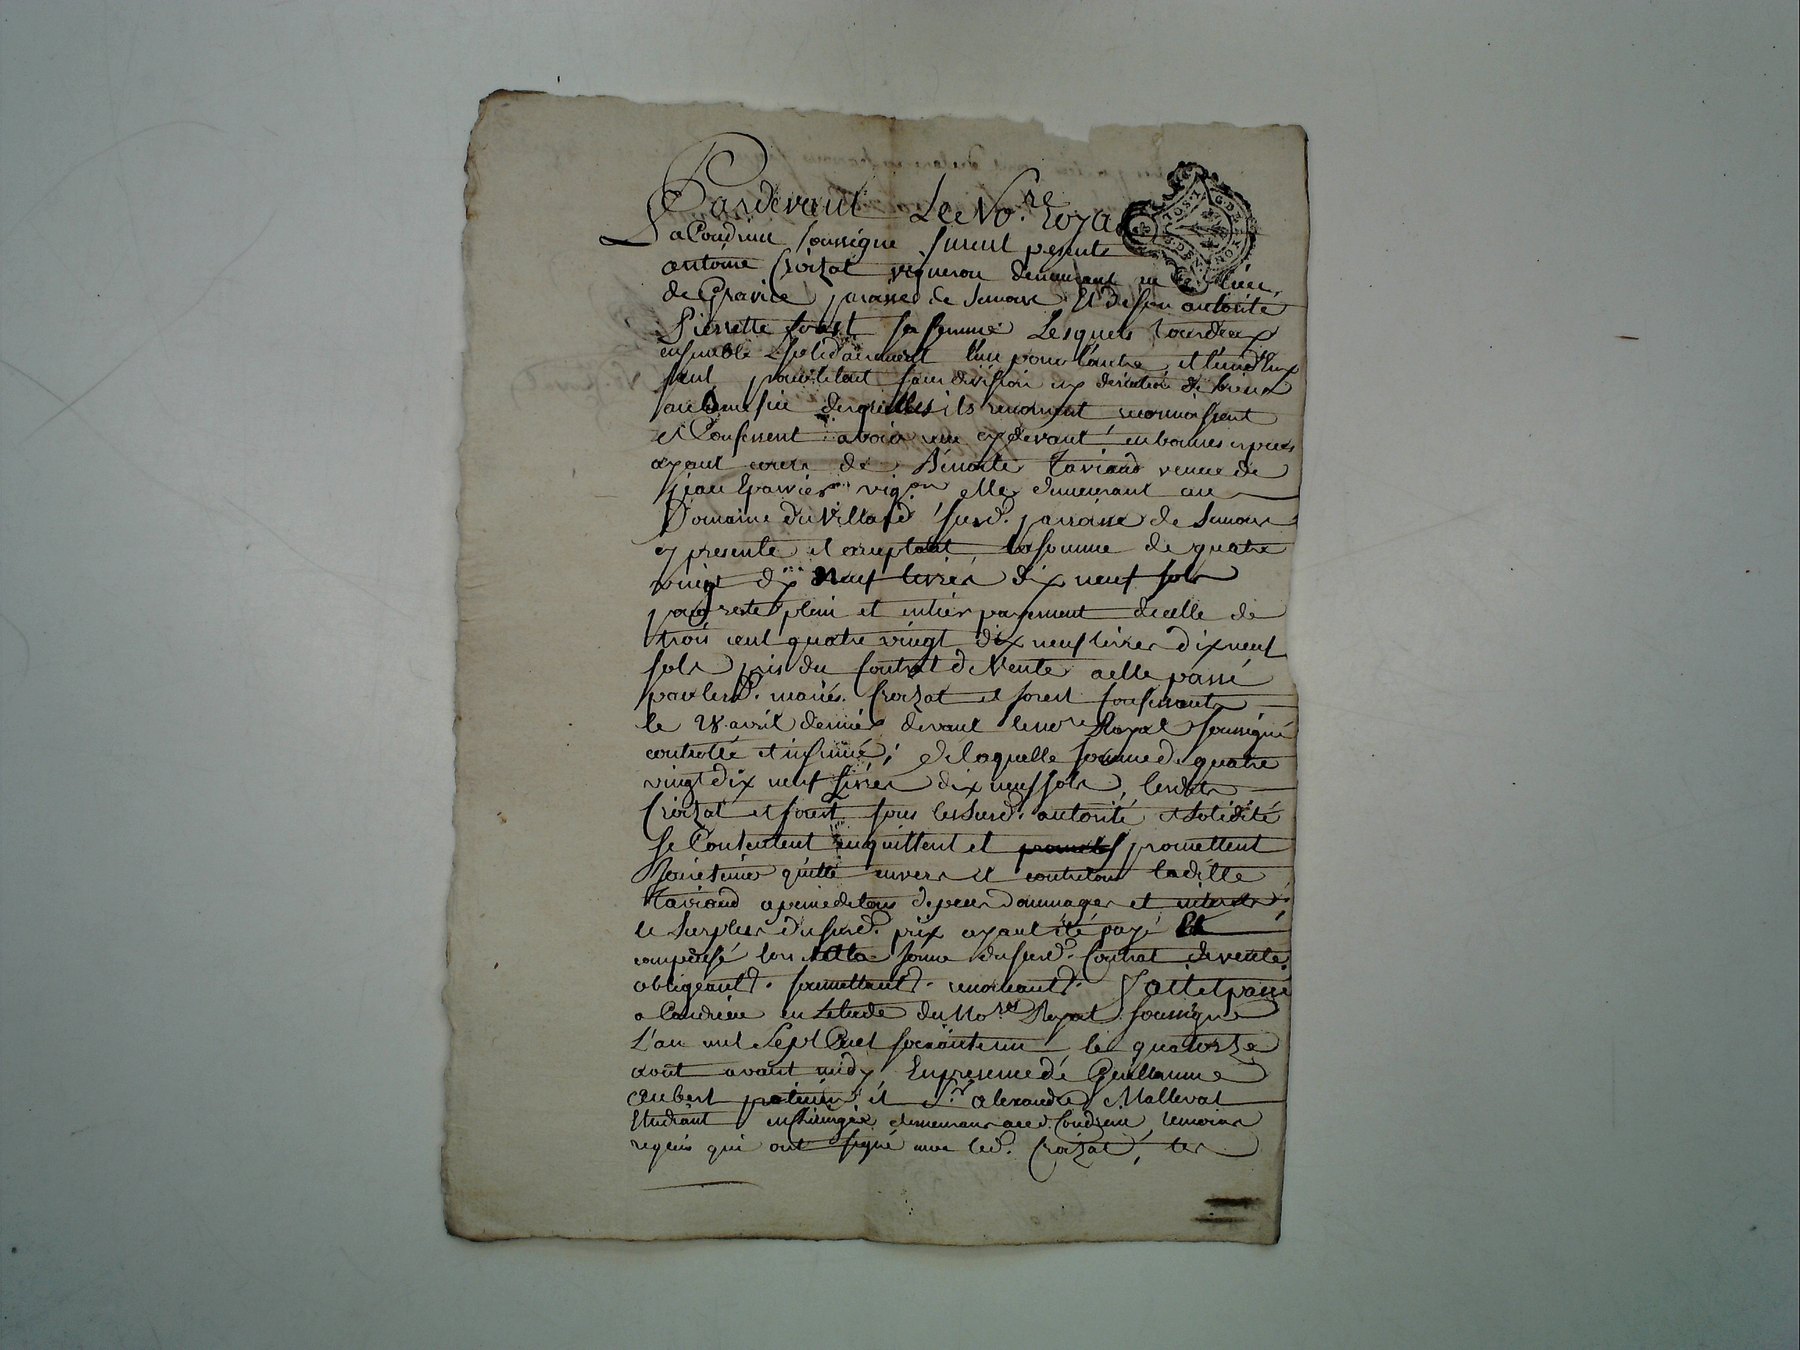 Pardevant Le No.re Roya
a Condrieu soussigné furent presents
antoine Croizat vigneron demeurant au lieu
de Gravice paroisse de Semons Et de son autorité
Pierrette forest sa femme Lesquels tourdeux
ensemble solidairement l'un pour l'autre et l'un d'Eux
seul pour le tout sans division ny discution de biens
au benefice desquelles ils renoncent, reconnoissent
et Confessent avoir reçu cy devant en bonnes especes
ayant cours de Benoite Taviand veuve de
jean Eparvier vig.on elle demeurant au
Domaine du Villard susd. parroisse de Semons
cy presente et acceptant la somme de quatre
vingt dix neuf livres dix neuf sols
pour reste plein et entier payement de celle de
trois cent quatre vingt dix neuf livres dix neuf
sols prix du Contrat de Vente a elle passé
par lesd. mariés Croizat et forest confessants
le 28 avril dernier devant le no.re Royal soussigné
controllé et insinué; de laquelle somme de quatre
vingt dix neuf Livres dix neuf sols, lesdits
Croizat et forest sous les susd. autorité et solidité
se Contentent en quittent et promettent
tenir quitte envers et contre tous laditte
Taviand a peine de tous depens dommages et interets
le surplus dususd. prix ayant été payé
compensé lors de la dususd. Contrat de vente.
obligeants. soumettants. renonceants. fait et passé
a Condrieu en L'etude du No.re Royal soussigné
L'an mil Sept Cent soixante un le quatorze
août avant midy En presence de Guillaume
aubert et s.r alexandre Malleval
Etudiant en Chirurgie demeurans aud. Condrieu temoins
requis qui ont signé avec led. Croizat, les